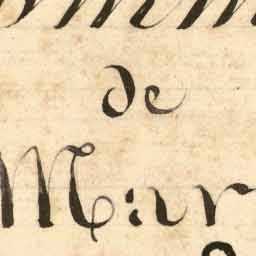 omm
de
Mar